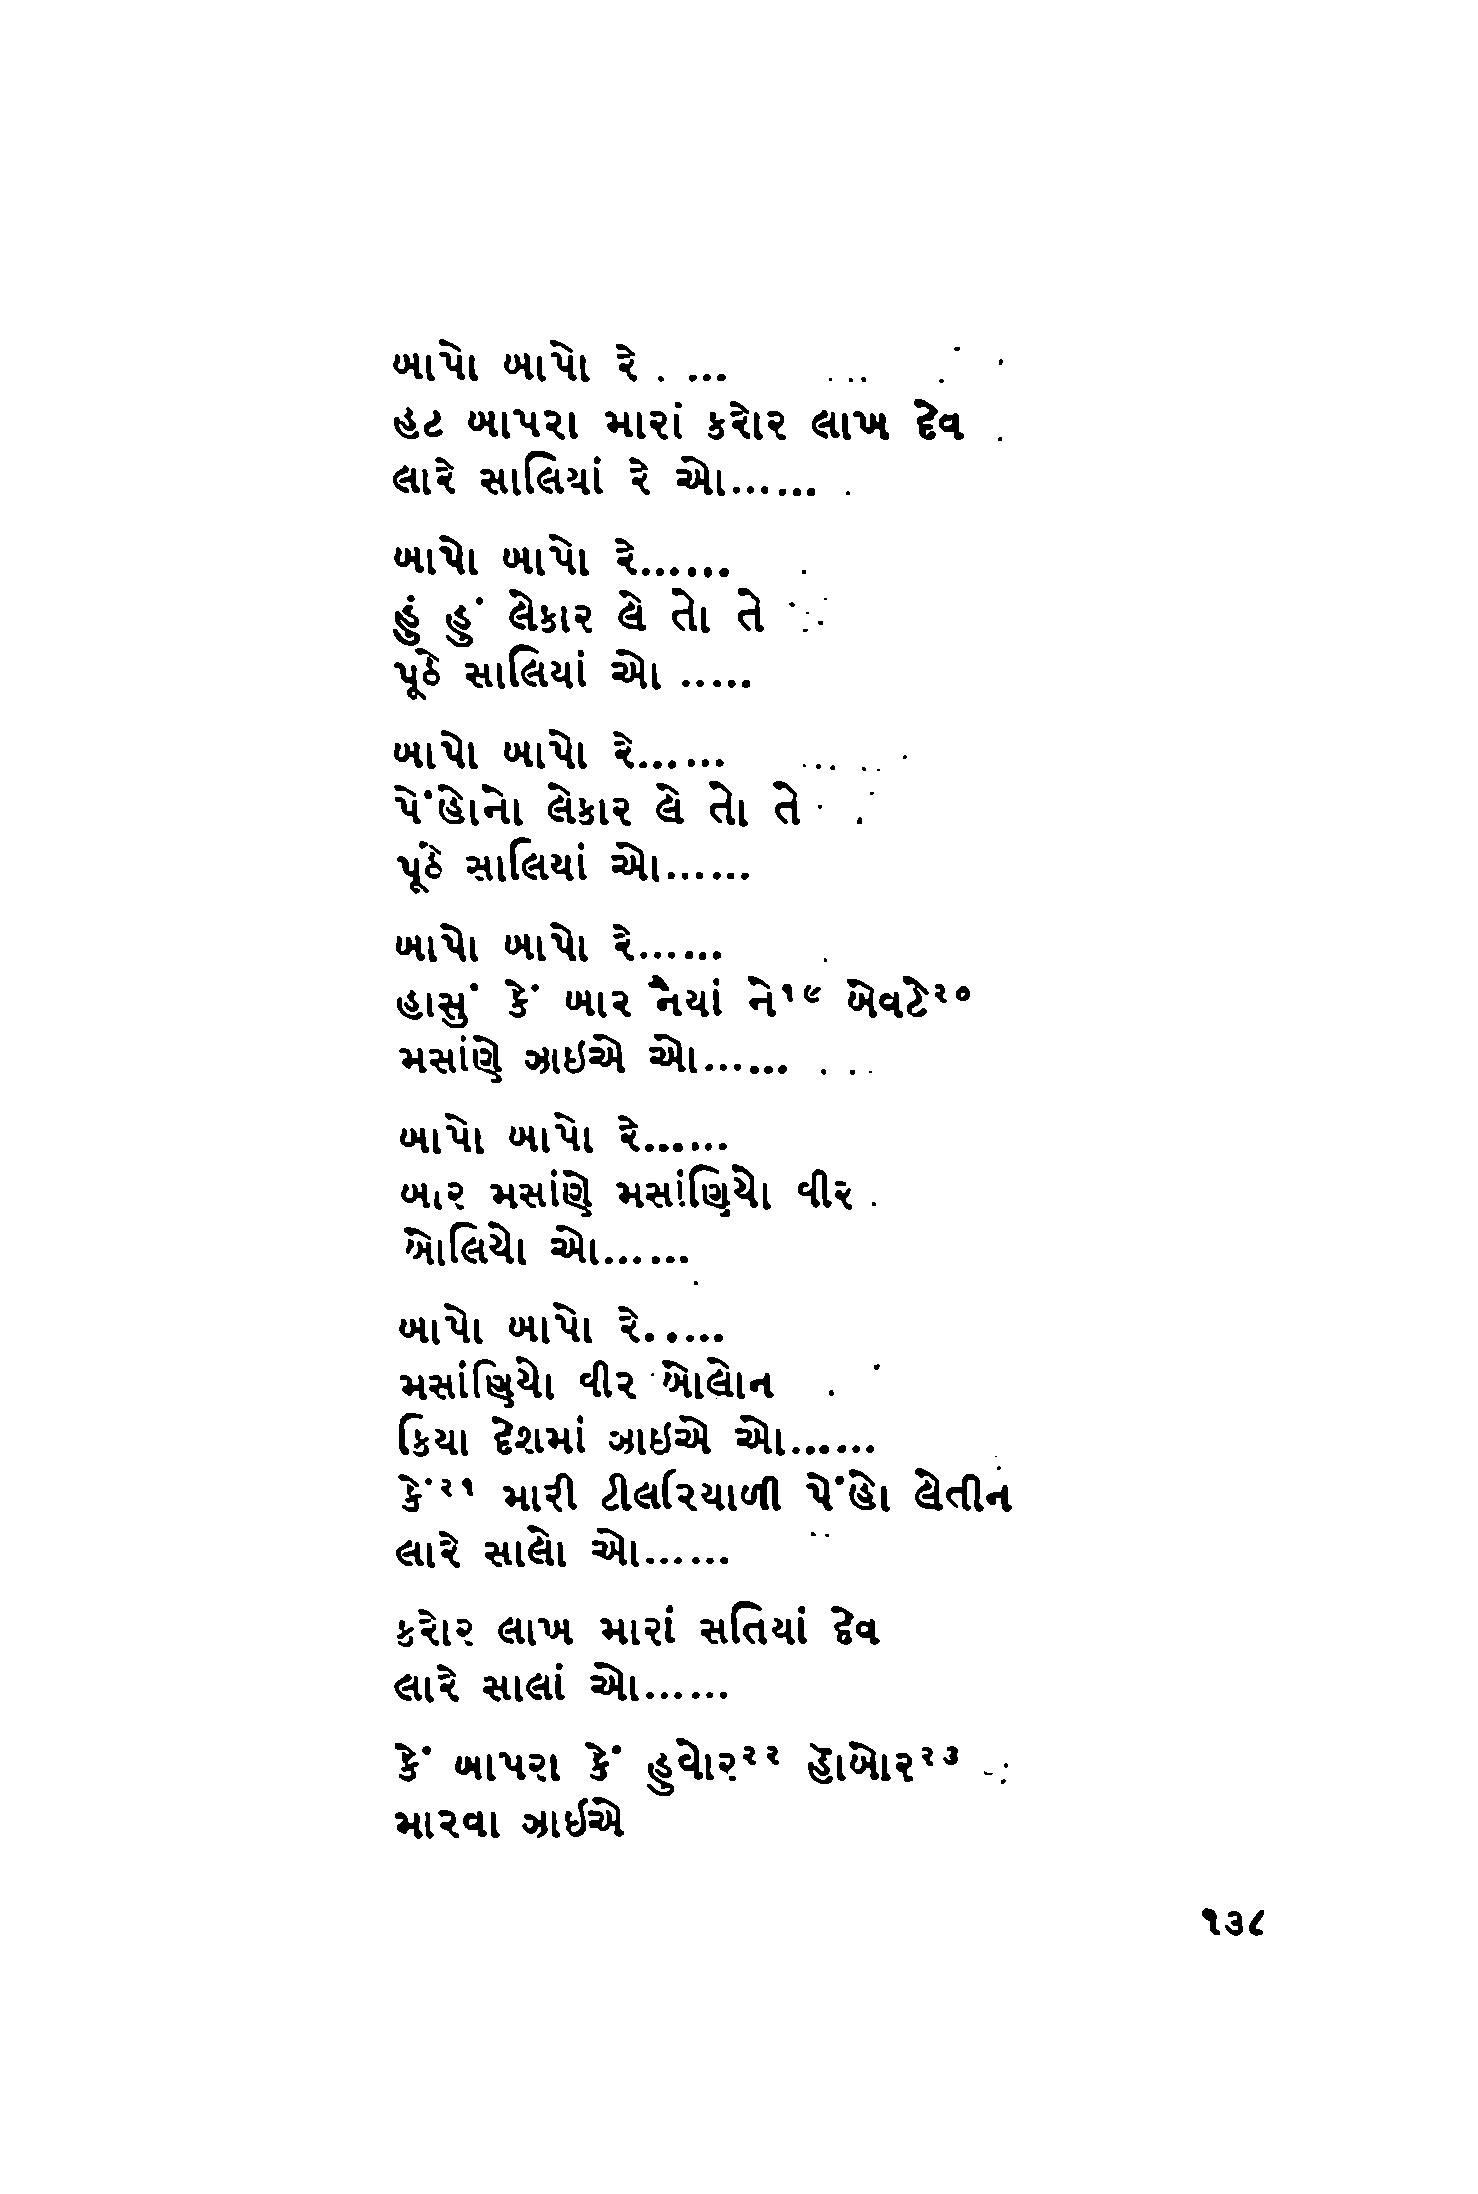 બાપો બાપો રે . ...
હટ બાપરા મારાં કરોર લાખ દેવ
લારે સાલિયાં રે ઓ......
બાપો બાપો રે......
હું હું લેકાર લે તો તે
પૂઠે સાલિયાં ઓ .....
બાપો બાપો રે......
પેંહોનો લેકાર લે તો તે
પૂંઠે સાલિયાં ઓ......
બાપો બાપો રે......
હાસું કેં બાર નૈયાં ને૧૯ બેવટે૨૦
મસાંણે ઝાઇએ ઓ......
બાપો બાપો રે......
બાર મસાંણે મસાંણિયો વીર
બોલિયો ઓ......
બાપો બાપો રે......
મસાંણિયો વીર બોલોન
કિયા દેશમાં ઝાઇએ ઓ......
કેં૨૧ મારી ટીલરિયાળી પેંહો લેતીન
લારે સાલો ઓ......
કરોર લાખ મારાં સતિયાં દેવ
લારે સાલાં ઓ......
કેં બાપરા કેં હુવોર૨૨ હૉબોર૨૩
મારવા ઝાઈએ
૧૩૮